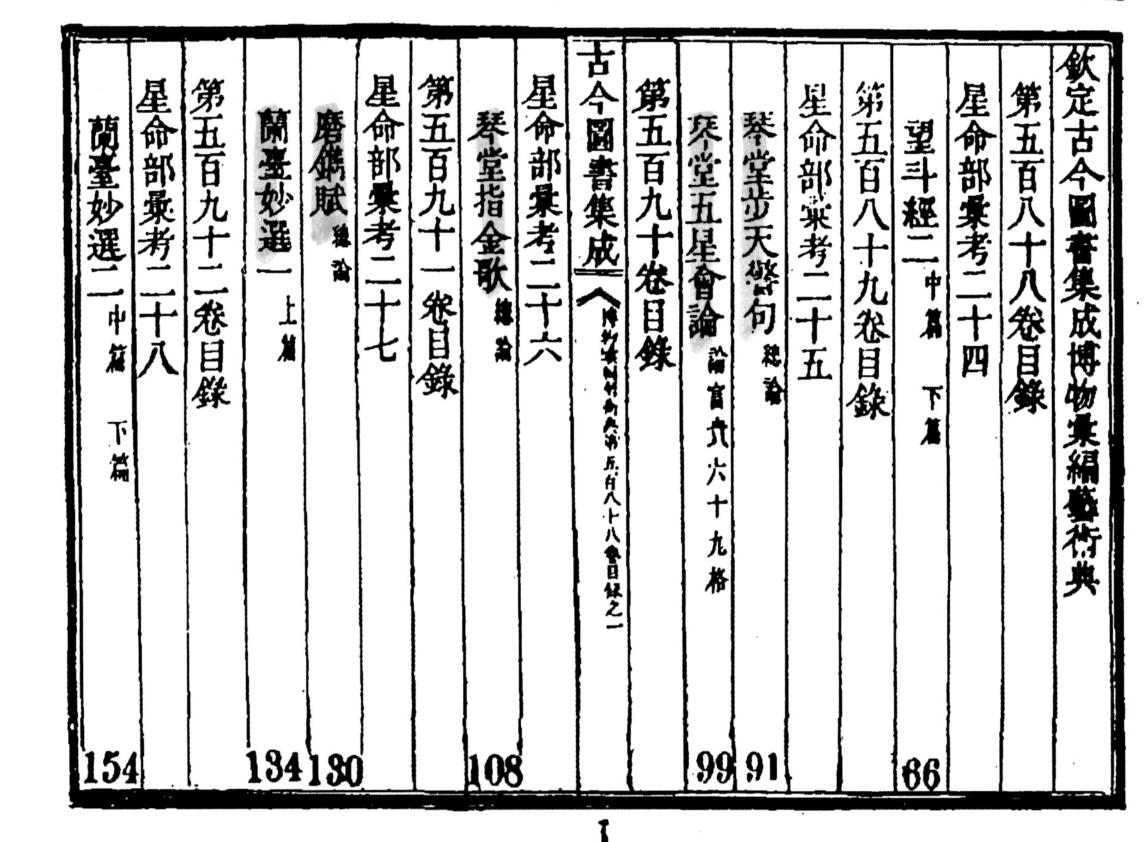 欽定古今圖書集成博物彙編藝術典
第五百八十八卷目錄
星命部彙考二十四
望斗經二 中篇 下篇 66
第五百八十九卷目錄
星命部彙考二十五
琴堂步天警句 總論 91
琴堂五星會論 論官貴六十九格 99
第五百九十卷目錄
古今圖書集成 博物彙編藝術典第五百八十八卷目錄之一
星命部彙考二十六
琴堂指金歌 總論 108
第五百九十一卷目錄
星命部彙考二十七
磨鐫賦 總論 130
蘭臺妙選一 上篇 134
第五百九十二卷目錄
星命部彙考二十八
蘭臺妙選二 中篇 下篇 154
1